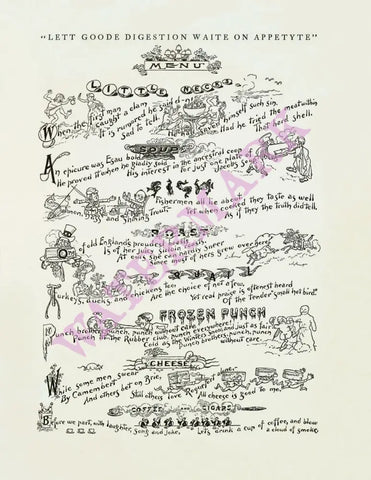 "LETT GOODE DIGESTION WAITE ON APPETYTE"
MENU
LITTLE NECKS
When the first man a clam caught a
It is rumored he said d-n
Sad to tell. himself such sin.
Had he tried the meat within
That hard shell.
SOUP
An epicure was Esau bold
He proved it when he gladly sold
His interest in the ancestral coop
for just one plate of
Jacob's So
FISH
Salmon, Bass and Shining Trout
Fishermen lie about
Yet when cooked they taste as well
As if they the Truth did tell.
ROAST
of old England's proudest
Is of her juicy Sirloin
At earls she can hardly sneer
Since most of hers grew over here
QUAIL
Turkeys, ducks, and chickens too
Are the choice of not a few,
Yet real praise is oftenest heard
Of the tender small hot bird.
FROZEN PUNCH
Punch brothers punch, punch without care
Punch till the Rubber club, punch everywhere,
Cold as the Winter's snow, and just as fair
Punch brothers, punch, punch
without care.
CHEESE
While some men swear
By Camembert
And others bet on Brie,
Still others love Roquefort alone.
All cheese is good to me.
COFFEE AND CIGARS
Before we part, with laughter, Song and Joke.
Let's drink a cup of coffee, and blow
a cloud of smoke.
WATERMARK